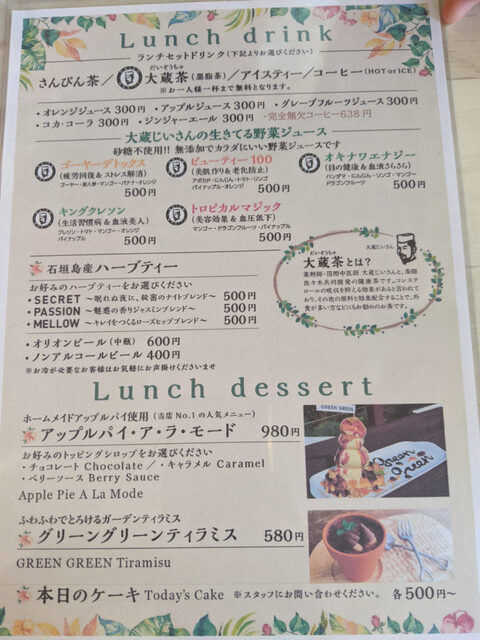 Lunch drink
ランチセットドリンク(下記よりお選びください)
さんぴん茶／大蔵茶(黒脂茶)／アイスティー／コーヒー(HOT or ICE)
だいぞうちゃ
※お一人様一杯まで無料となります。
・オレンジジュース 300円 ・アップルジュース 300円 ・グレープフルーツジュース 300円
・コカ・コーラ 300円 ・ジンジャーエール 300円 ・完全無欠コーヒー638円
大蔵じいさんの生きてる野菜ジュース
砂糖不使用!! 無添加でカラダにいい野菜ジュースです
ゴーヤーデトックス
(疲労回復&ストレス解消)
ゴーヤー・島人参・マンゴー・バナナ・オレンジ
500円
ビューティー100
(美肌作り&老化防止)
アボカド・にんじん・トマト・リンゴ
パイナップル・オレンジ
500円
オキナワエナジー
(目の健康&血液さらさら)
ハンダマ・にんじん・リンゴ・マンゴー
ドラゴンフルーツ
500円
キングクレソン
(生活習慣病&血液美人)
クレソン・トマト・マンゴー・オレンジ
パイナップル
500円
トロピカルマジック
(美容効果&血圧低下)
マンゴー・ドラゴンフルーツ・パイナップル
500円
大蔵じいさん
だいぞうちゃ
大蔵茶とは?
薬剤師・国際中医師 大蔵じいさんと、茶師
佐々木共同開発の健康茶です。コレステ
ロールの吸収を抑える効果があると言われて
おり、その他の原料と効果配合することで、外
食が多い方などにもお勧めのお茶です。
石垣島産ハーブティー
お好みのハーブティーをお選びください
・SECRET ～眠れぬ夜に、秘密のナイトブレンド～ 500円
・PASSION ～魅惑の香りジャスミンブレンド～ 500円
・MELLOW ～キレイをつくるローズヒップブレンド～ 500円
・オリオンビール(中瓶) 600円
・ノンアルコールビール 400円
※お冷が必要なお客様はお気軽にお声掛けくださいませ
Lunch dessert
ホームメイドアップルパイ使用 (当店 No.1 の人気メニュー)
アップルパイ・ア・ラ・モード 980円
お好みのトッピングシロップをお選びください
・チョコレート Chocolate ／ ・キャラメル Caramel
・ベリーソース Berry Sauce
Apple Pie A La Mode
GREEN GREEN
Green Green
ふわふわでとろけるガーデンティラミス
グリーングリーンティラミス 580円
GREEN GREEN Tiramisu
本日のケーキ Today's Cake ※スタッフにお問い合わせください。 各500円～